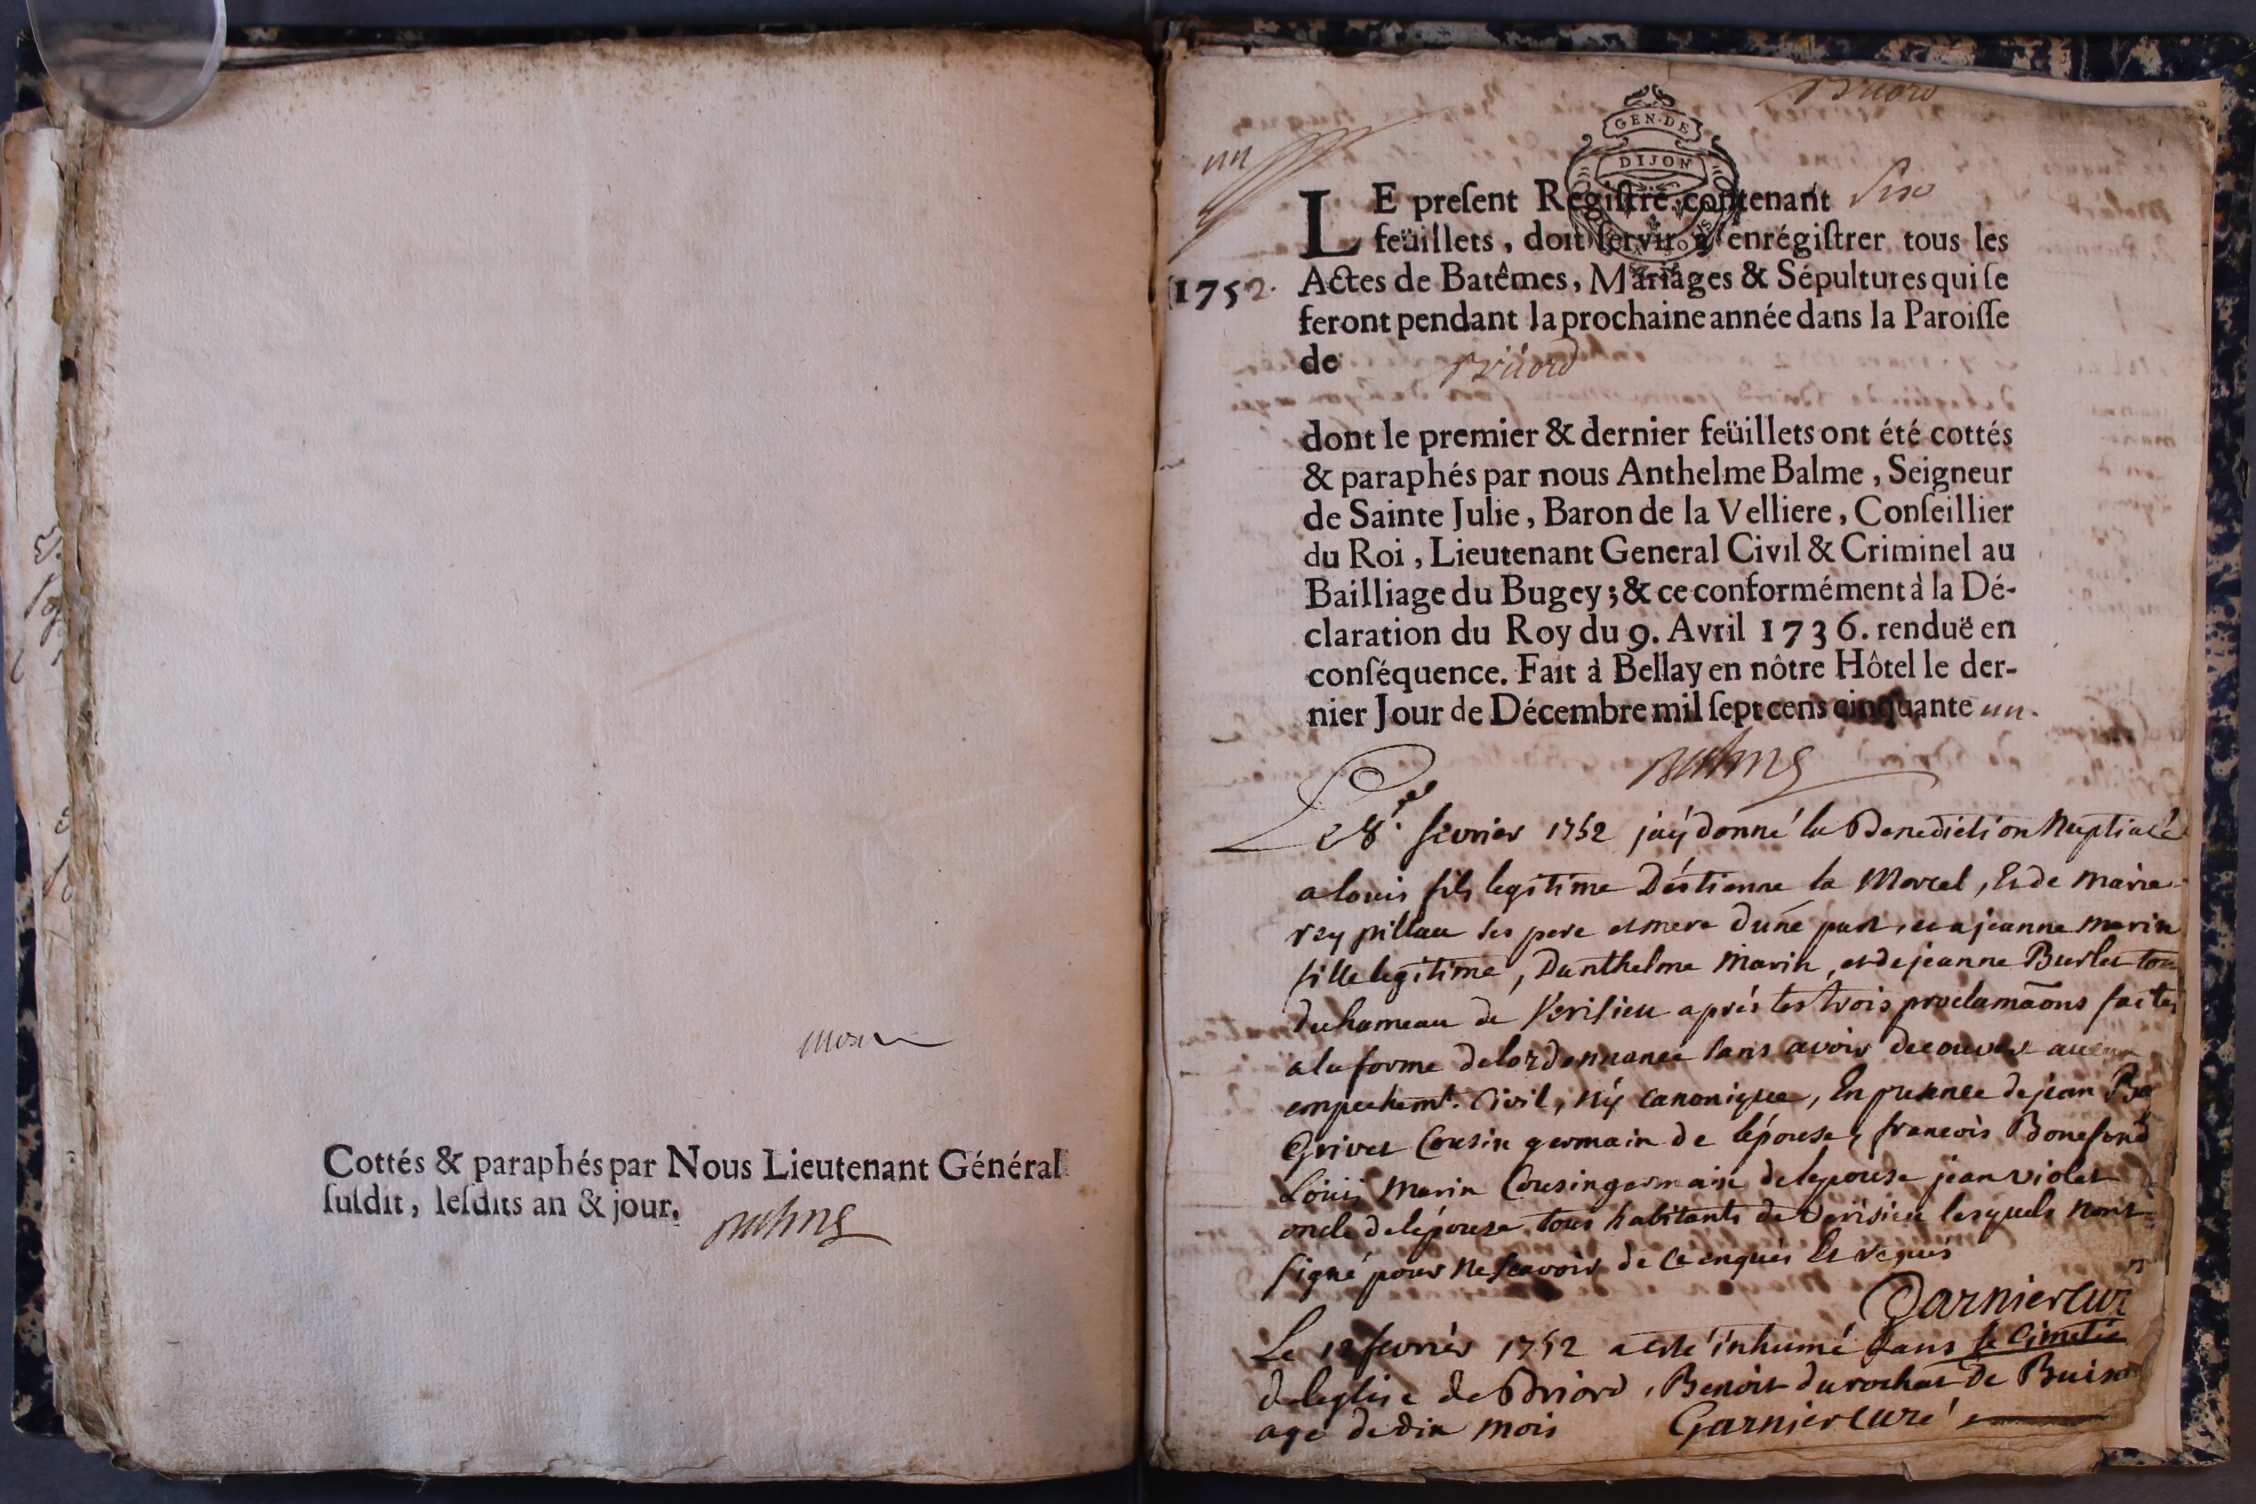 Cottés & paraphés par Nous Lieutenant Général
ſuſdit, leſdits an & jour.
Briord
GEN·DE
DIJON
un
LE preſent Regiſtre contenant Six
feüillets, doit ſervir à enrégiſtrer tous les
Actes de Batêmes, Mariages & Sépultures qui ſe
1752.
feront pendant la prochaine année dans la Paroiſſe
de Briord
dont le premier & dernier feüillets ont été cottés
& paraphés par nous Anthelme Balme, Seigneur
de Sainte Julie, Baron de la Velliere, Conſeillier
du Roi, Lieutenant General Civil & Criminel au
Bailliage du Bugey; & ce conformément à la Dé-
claration du Roy du 9. Avril 1736. renduë en
conſéquence. Fait à Bellay en nôtre Hôtel le der-
nier Jour de Décembre mil ſept cens cinquante un.
Le 8. fevrier 1752 jaÿ donné la Benediction Nuptiale
a louis fils legitime Déstienne la Morcel, Et de marie
rey pillau ses pere et mere dune part, et a jeanne marin
fille legitime, Danthelme Marin, et de jeanne Burlet tous
du hameau de Verisieu aprés les trois proclamaons faites
a la forme de lordonnance sans avoir decouvert aucun
empechemt. Civil, nÿ canonique, En presence de jean
Grivet Cousin germain de lépouse, francois Bonefond
Louis Marin Cousin germain de lepouse jean violet
oncle de lépouse tous habitants de verisieu lesquels nont
signé pour ne scavoir de ce enquis Et requis
Garnier curé
Le 12 fevrier 1752 a esté inhumé dans le Cimetie
de leglise de Briord, Benoit durochat de Buis
age de dix mois Garnier curé